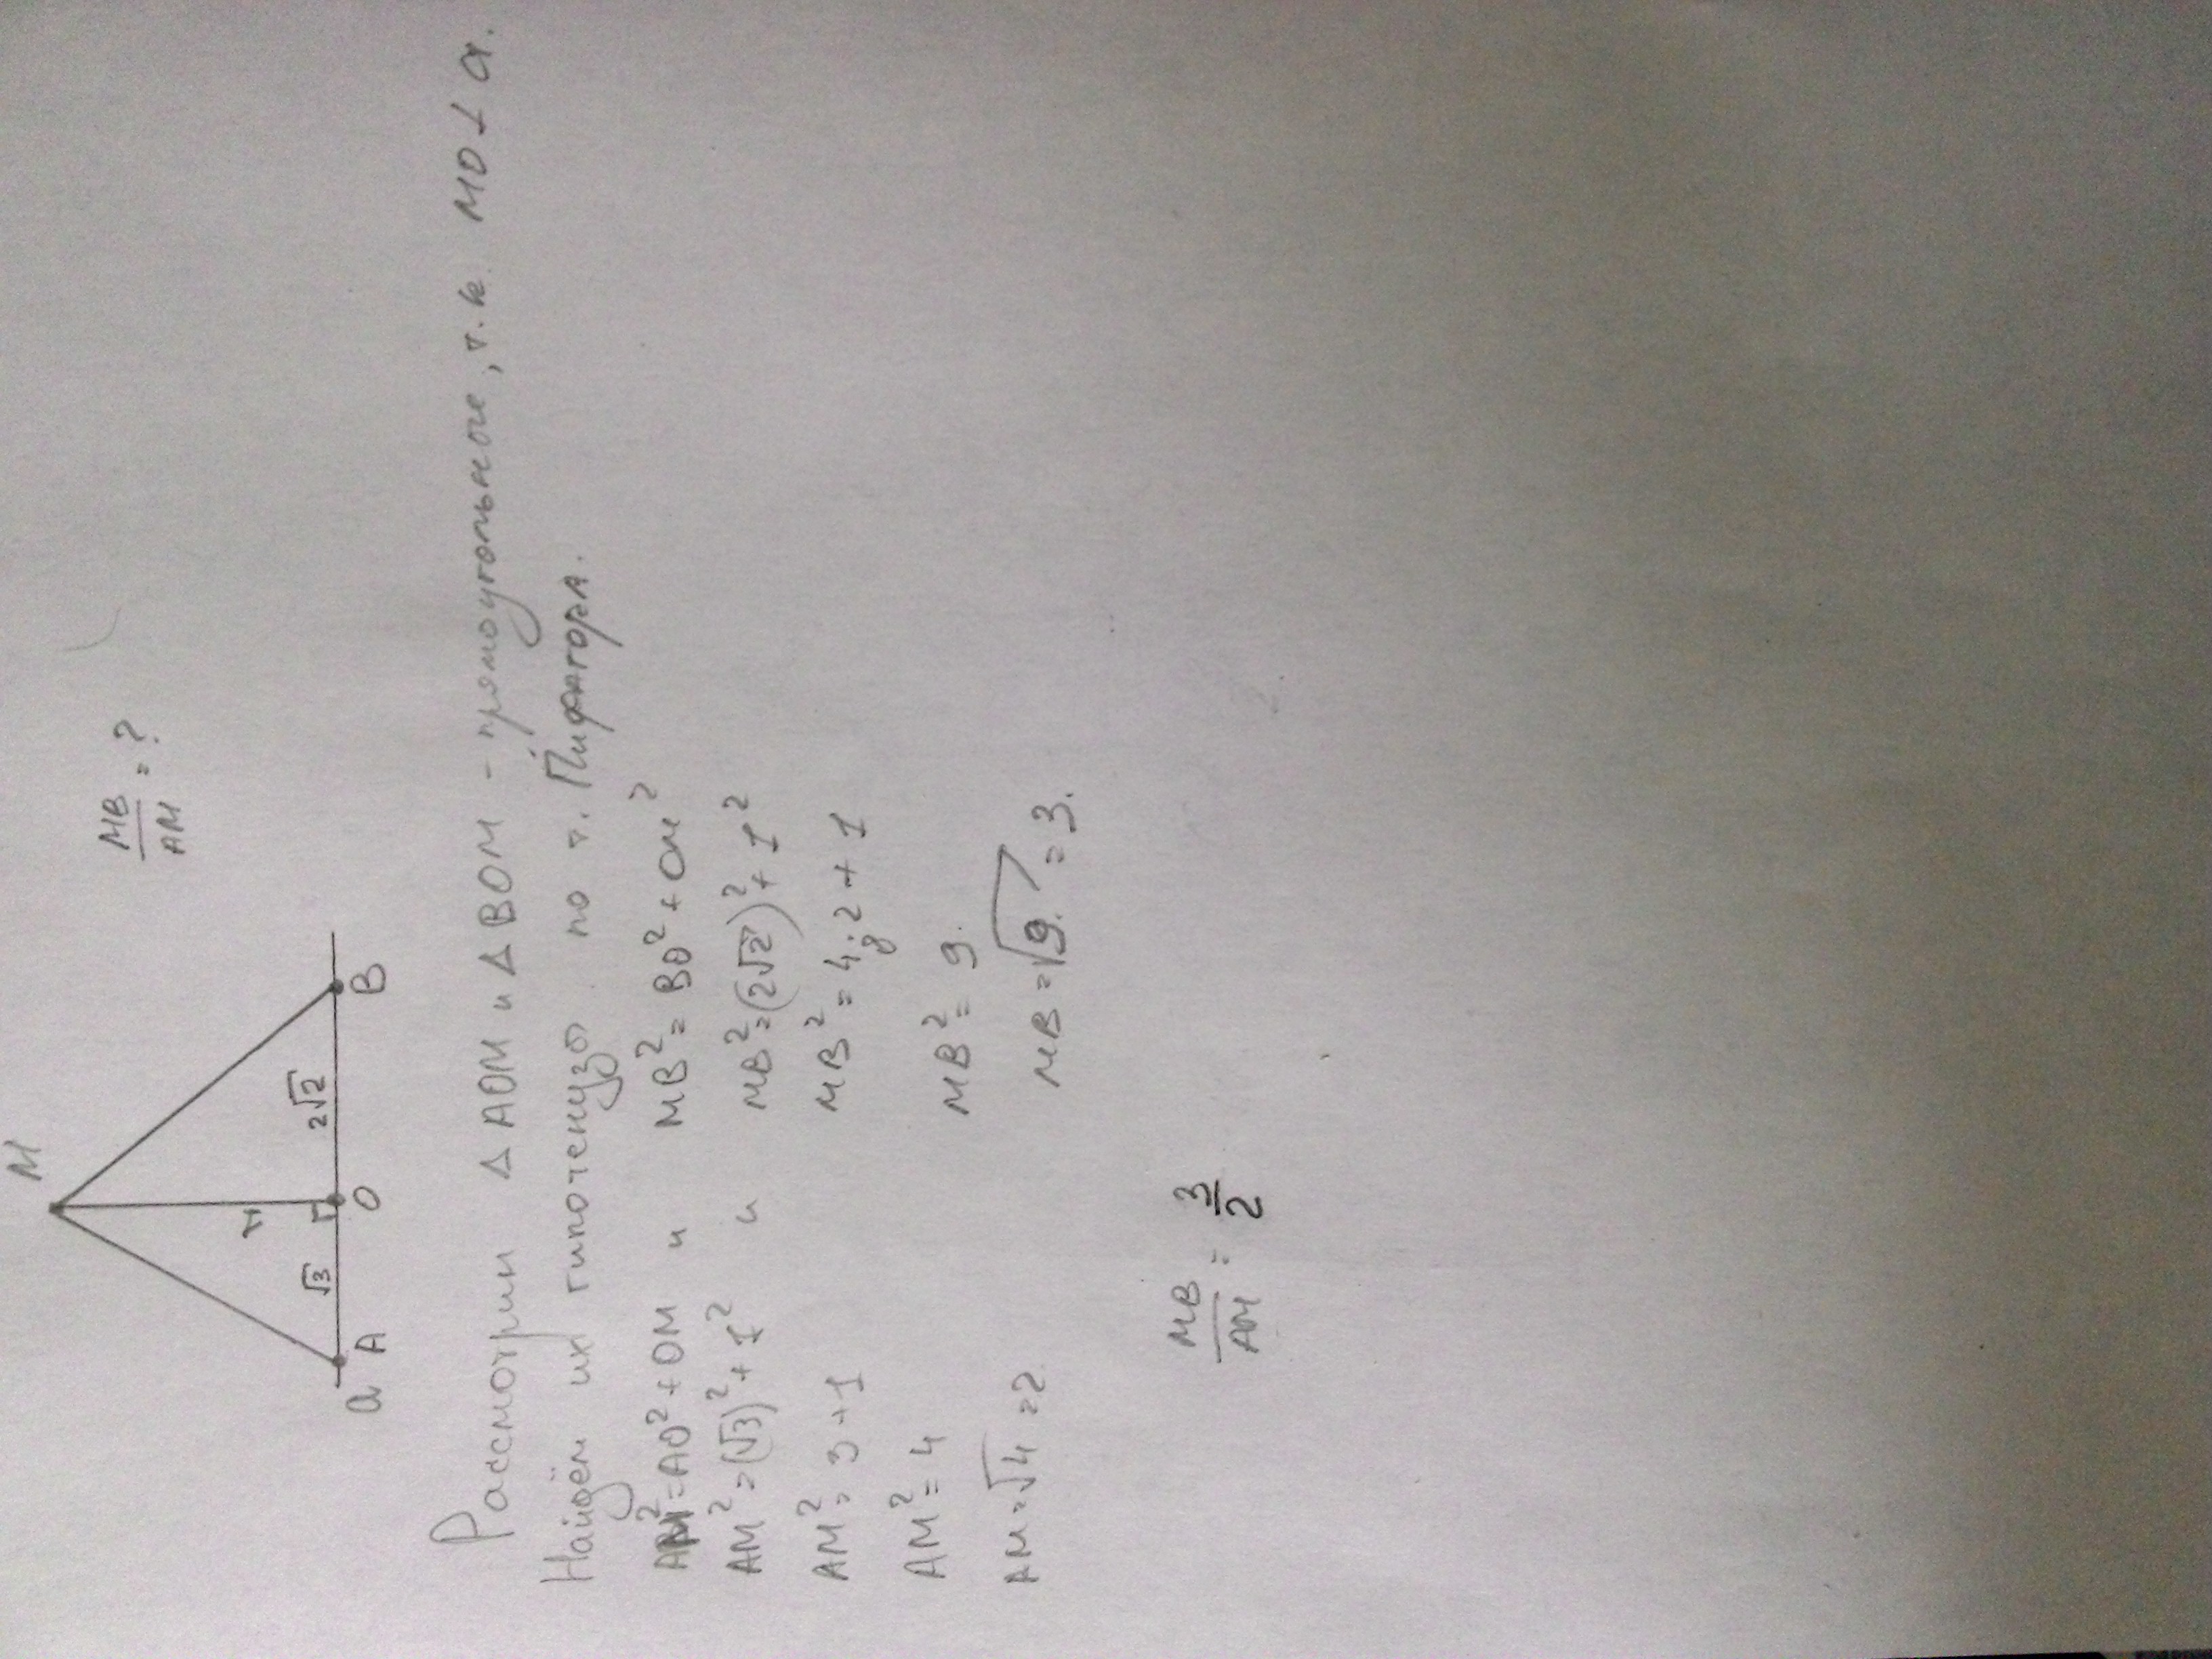 M
MB/AM = ?
1
√3
2√2
a A O B
Рассмотрим Δ AOM и Δ BOM - прямоугольные, т.к. MO ⊥ a.
Найдём их гипотенузо по т. Пифагора.
AM² = AO² + OM и MB² = BO² + OM²
AM² = (√3)² + 1² и MB² = (2√2)² + 1²
AM² = 3 + 1 MB² = 4 · 2 + 1
8
AM² = 4 MB² = 9.
AM = √4 = 2 MB = √9. = 3.
MB/AM = 3/2